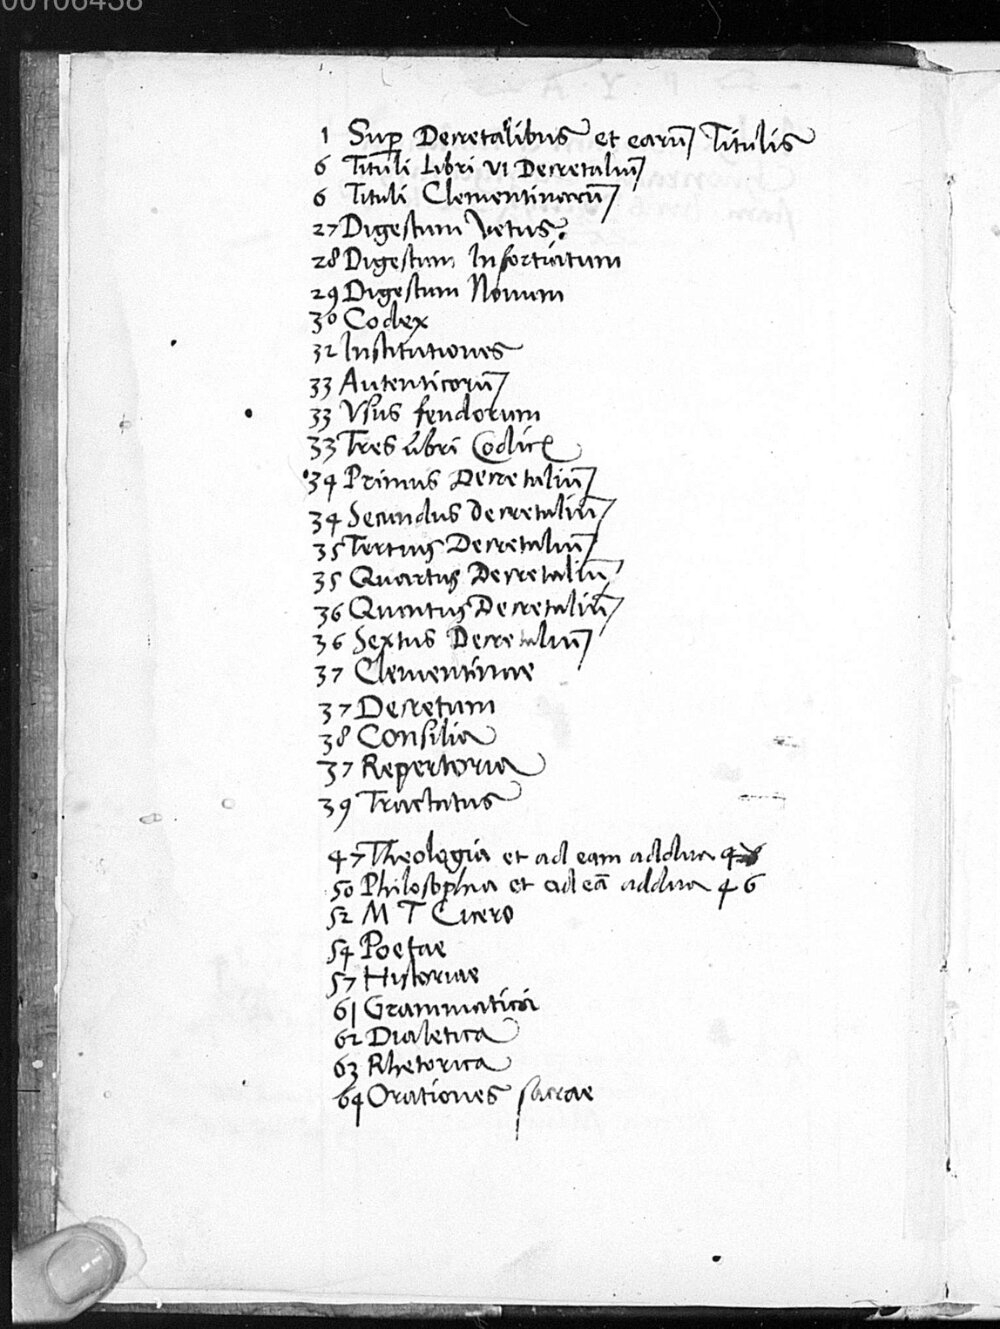 00106438
1 Sup Decretalibus et earū Titulis
6 Tituli Libri VI Decretaliū
6 Tituli Clementinarū
27 Digestum Vetus.
28 Digestum Infortiatum
29 Digestum Nouum
30 Codex
32 Institutiones
33 Autenticorū
33 Vsus feudorum
33 Tres Libri Codic
34 Primus Decretaliū
34 Secundus Decretaliū
35 Tertius Decretaliū
35 Quartus Decretaliū
36 Quintus Decretaliū
36 Sextus Decretaliū
37 Clementinae
37 Decretum
38 Consilia
37 Repertoria
39 Tractatus
47 Theologia et ad eam addita
50 Philosophia et ad eā addita 46
52 M T Cicero
54 Poetae
57 Historiae
61 Grammatica
62 Dialetica
63 Rhetorica
64 Orationes sacrae